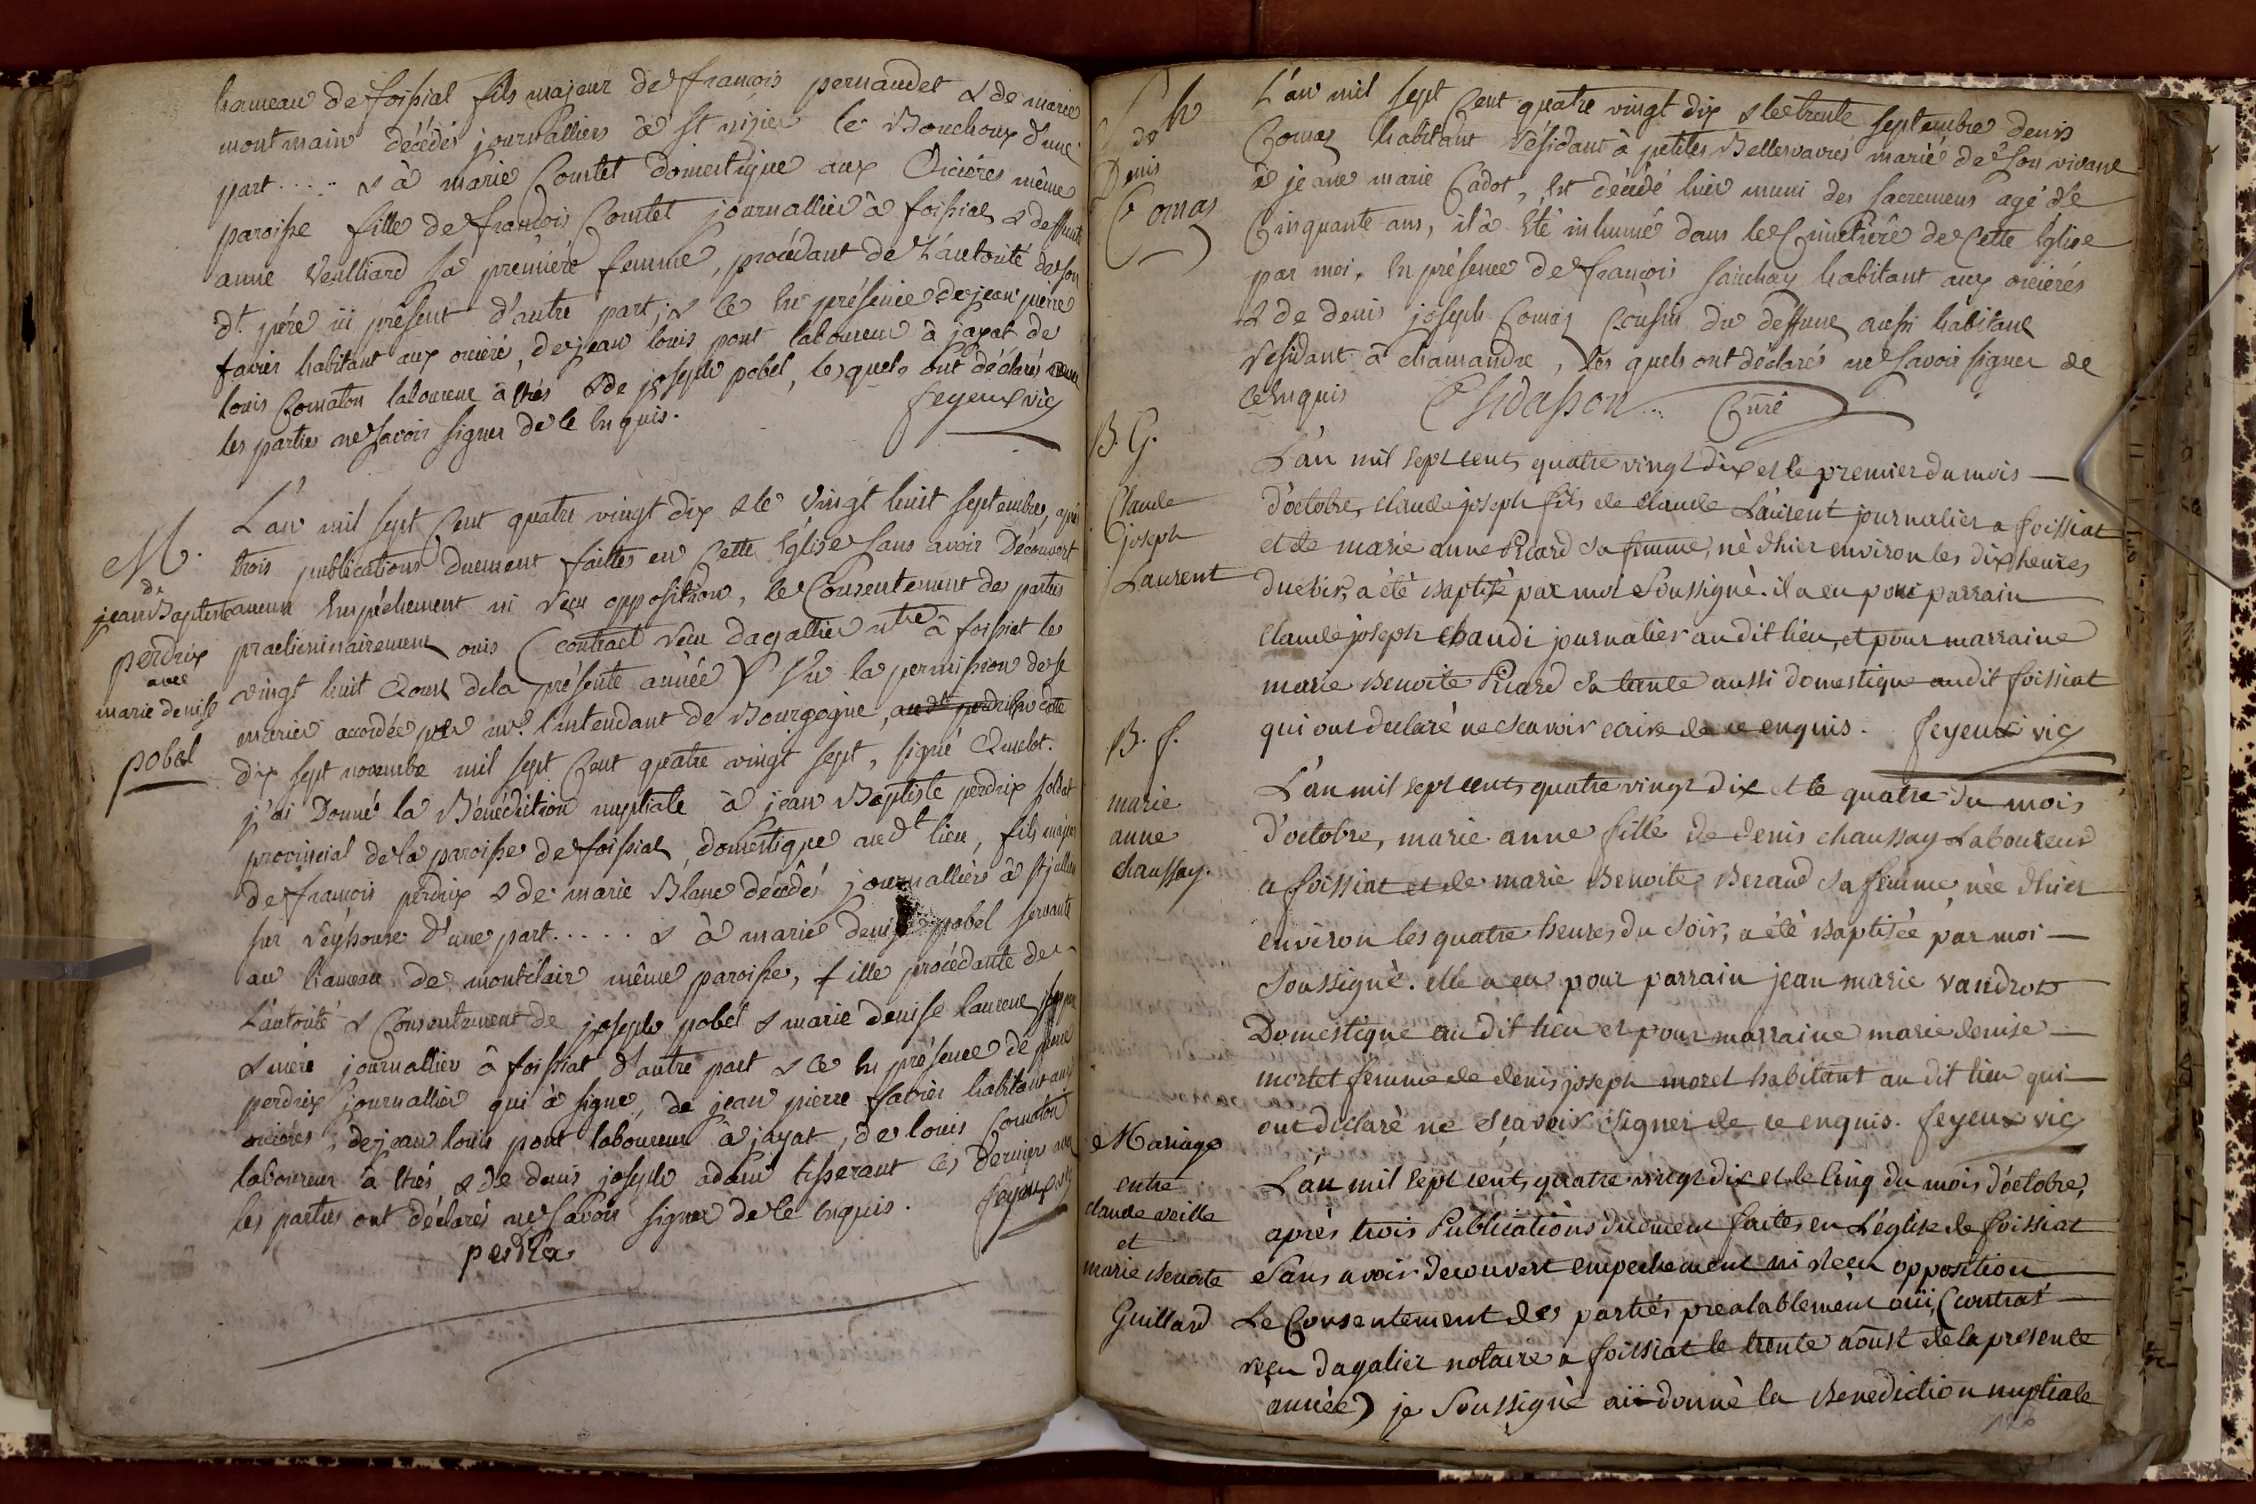 hameau de foissiat fils majeur de françois pernaudet & de marie
montmain décédés journalliers à st nizier le Bouchoux d'une
part..... & à marie Comtet domestique aux Orcières même
paroisse fille de françois Comtet journallier à foissiat & deffunte
anne veulliard sa première femme, procédant de L'autorité de son
dt père ici présent d'autre part, & ce En présence de jean pierre
favier habitant aux orcière, de jean louis pont laboureur à jayat de
louis Comaton laboureur à & de joseph pobel, lesquels ont déclarés
les parties ne savoir signer de ce Enquis. feyeux vic
M.
de
jean Baptiste
perdrix
avec
marie denise
pobel
L'an mil sept Cent quatre vingt dix & le vingt huit septembre, après
trois publications duement faittes en Cette Eglise sans avoir Découvert
aucun Empêchement ni reçu opposition, le Consentement des parties
praeliminairement ouis (contract reçu dagallier ntre à foissiat le
vingt huit Aoust de la présente année) Vu la permission de se
marier accordée par mr. l'intendant de Bourgogne,
dix sept novembre mil sept Cent quatre vingt sept, signé Amelot.
j'ai Donné la Bénédiction nuptiale à jean Baptiste perdrix soldat
provincial de la paroisse de foissiat, domestique aud.t lieu, fils majeur
de françois perdrix & de marie Blanc décédés journalliers à st jullien
sur Reyssouse d'une part..... & à marie denise pobel servante
au hameau de montclair même paroisse, fille procédante de
L'autorité & Consentement de joseph pobel & marie denise laurent ses père
& mère journallier à foissiat d'autre part & ce En présence de pierre
perdrix journallier qui à signé, de jean pierre favier habitant aux
orcières, de jean louis pont laboureur à jayat, de louis Comaton
laboureur à & de denis joseph adam tisserant ces derniers avec
les parties ont déclarés ne savoir signer de ce Enquis. feyeux vic
perdrix
Sh
de
Denis
Comas
L'an mil sept Cent quatre vingt dix & le trente septembre denis
Comas habitant résidant à petites Bellesvavres marié de son vivant
à jeanne marie Cadot, Est décédé hier muni des sacremens agé de
Cinquante ans, il à Eté inhumé dans le Cimetière de Cette Eglise
par moi, En présence de françois sauchay habitant aux orcières
& de denis joseph Comas Cousin du deffunt aussi habitant
résidant à chamandre, les quels ont déclarés ne savoir signer de
ce Enquis Curé
B. G.
Claude
joseph
Laurent
L'an mil sept cent quatre vingt dix et le premier du mois
d'octobre, claude joseph fils de claude Laurent journalier a foissiat
et de marie anne Picard sa femme, né d'hier environ les dix heures
du soir, a été baptisé par moi Soussigné. il a eu pour parrain
claude joseph chaudi journalier au dit lieu, et pour marraine
marie Benoite Picard sa tante aussi domestique au dit foissiat
qui ont declaré ne scavoir ecrire de ce enquis. feyeux vic
B. f.
marie
anne
chaussay.
L'an mil sept cent quatre vingt dix et le quatre du mois
d'octobre, marie anne fille de denis chaussay Laboureur
a foissiat et de marie Benoite Beraud sa femme, née d'hier
environ les quatre heures du soir, a été baptisée par moi
Soussigné. elle a eu pour parrain jean marie vandrot
Domestique au dit lieu et pour marraine marie denise
mortet femme de denis joseph morel habitant au dit lieu qui
ont declaré ne scavoir signer de ce enquis. feyeux vic
Mariage
entre
claude veille
et
marie Benoite
Guillard
L'an mil sept cent, quatre vingt dix et le Cinq du mois d'octobre,
après trois Publications duement faites en L'église de foissiat
Sans avoir decouvert empechement ni reçu opposition
Le Consentement des parties prealablement oüi, (contrat
reçu dagalier notaire a foissiat le trente aoust de la presente
année) je Soussigné ai donné la Benediction nuptiale